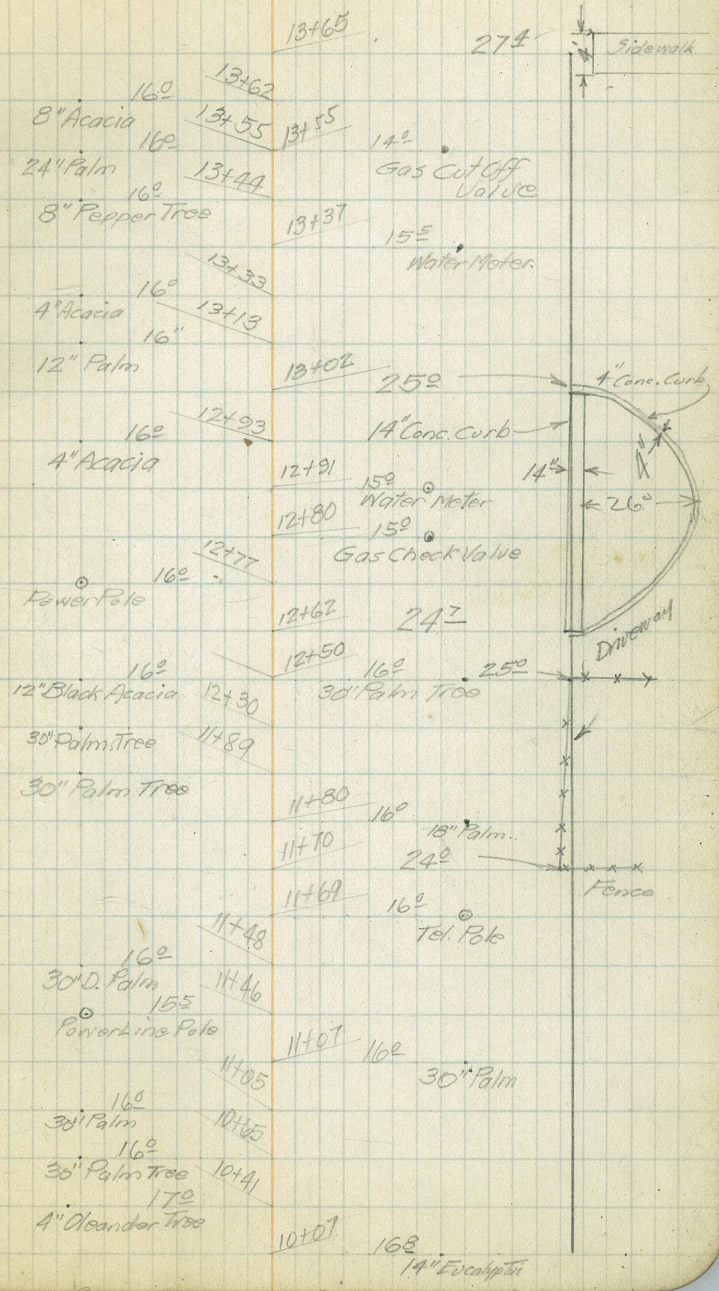 13+65 27⁴ 4' Sidewalk
16⁰ 13+62
8" Acacia
16⁰ 13+55 13+55 14⁰
24" Palm Gas Cut Off
Valve
16⁰ 13+44
8" Pepper Tree
13+37 15⁵
Water Meter.
13+33
16⁰
4" Acacia 13+13
16"
12" Palm
13+02 25⁰ 4" Conc. Curb
12+93
16⁰ 14" Conc. Curb
4" Acacia
4"
12+91 15⁰ 14"
Water Meter 26⁰
12+80 15⁰
Gas Check Valve
12+77
16⁰
Power Pole
12+62 24⁷
Driveway
12+50 16⁰ 25⁰
16⁰ 30" Palm Tree
12" Black Acacia 12+30
30" Palm Tree 11+89
30" Palm Tree
11+80 16⁰
18" Palm.
11+70 24⁰
Fence
11+69 16⁰
Tel. Pole
11+48
16⁰
30" D. Palm 11+46
15⁵
Power Line Pole
11+07 16⁰
30" Palm
11+05
16⁰
30" Palm 10+65
16⁰
30" Palm Tree 10+41
17⁰
4" Oleander Tree
10+07 16⁸
14" Eucalyptus